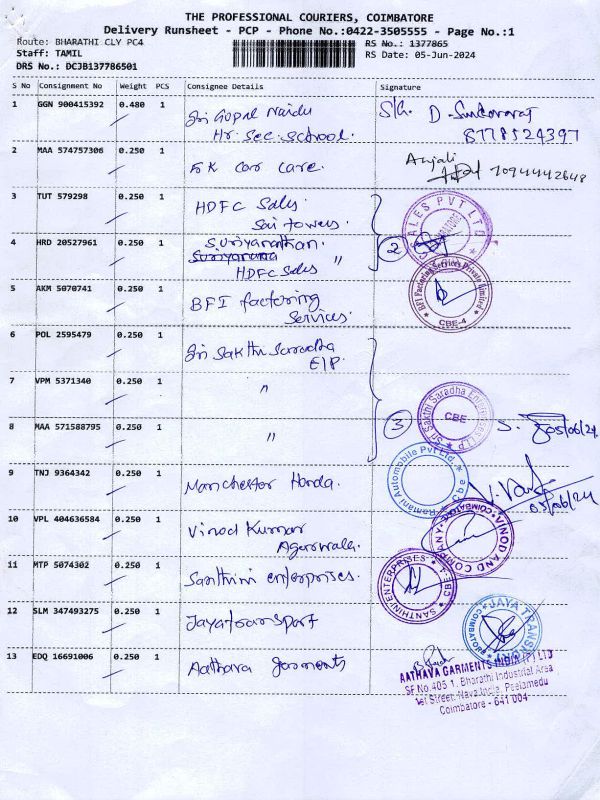 THE PROFESSIONAL COURIERS, COIMBATORE
Delivery Runsheet - PCP - Phone No.:0422-3505555 - Page No.:1
Route: BHARATHI CLY PC4
RS No.: 1377865
Staff: TAMIL
RS Date: 05-Jun-2024
DRS No.: DCJB137786501
S No Consignment No Weight PCS Consignee Details Signature
1 GGN 900415392 0.480 1 Sri Gopal Naidu
Hr. Sec. School.
D. Sundararaj
8778524397
2 MAA 574757306 0.250 1 SK Car Care.
Anjali
7094442648
3 TUT 579298 0.250 1 HDFC Sales
Sai towers.
SALES PVT LTD
4 HRD 20527961 0.250 1 Suriyanathan.
HDFC Sales "
2
5 AKM 5070741 0.250 1 BFI factoring
Services.
BFI Factoring Services Private Limited
CBE-4
6 POL 2595479 0.250 1 Sri Sakthi Saradha
E/P.
7 VPM 5371340 0.250 1 "
8 MAA 571588795 0.250 1 "
3
Sri Sakthi Saradha Enterprises LLP
CBE
05/06/24
9 TNJ 9364342 0.250 1 Manchester Honda.
Ramani Automobile Pvt Ltd.
05/06/24
10 VPL 404636584 0.250 1 Vinod Kumar
Agarwala.
VINOD AND COMPANY
COIMBATORE
11 MTP 5074302 0.250 1 Santhini enterprises.
SANTHINI ENTERPRISES
CBE
12 SLM 347493275 0.250 1 Jayatransport
JAYA TRANSPORT
COIMBATORE
13 EDQ 16691006 0.250 1 Aathava garments
AATHAVA GARMENTS INDIA (P) LTD
SF No.405 1, Bharathi Industrial Area
1st Street, Nava India, Peelamedu
Coimbatore - 641 004